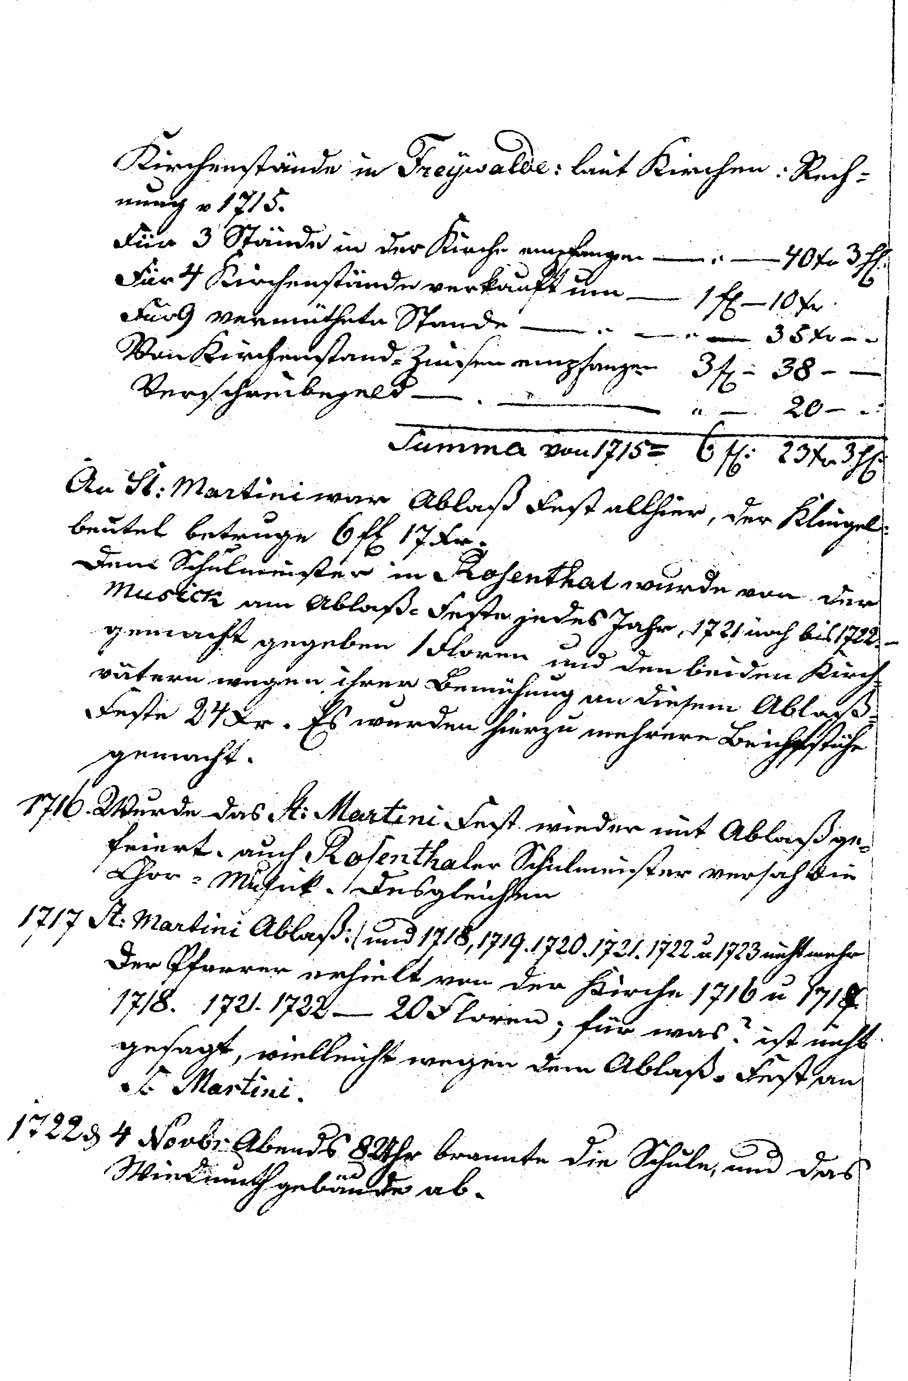 Kirchenstände in Freÿwalde: laut Kirchen: Rech=
nung v 1715.
Für 3 Stände in der Kirche empfangen — " — 40 xr 3 hl:
Für 4 Kirchenstände verkauft um — 1 fl — 10 xr
Für 9 vermüthete Stande — " — " — 35 xr - -
Von Kirchenstand=Zinsen empfangen 3 fl - 38 - —
Verschreibegeld — . — " — 20 - - :
Summa von 1715 = 6 fl: 23 xr 3 hl:
An St: Martini war Ablaß Fest allhier, der Klingel:
beutel betruge 6 fl 17 Xr.
Dem Schulmeister in Rosenthal wurde von der
Musick am Ablaß=Feste jedes Jahr, 1721 noch bis 1722.—
gemacht gegeben 1 Floren und den beiden Kirch=
vätern wegen ihrer Bemühung an diesem Ablaß=
Feste 24 Xr. Es wurden hierzu mehrere Beichtstühle
gemacht.
1716. Wurde das St: Martini Fest wieder mit Ablaß ge=
feiert. auch Rosenthaler Schulmeister versah die
Chor=Musick. Desgleichen
1717 St: Martini Ablaß: (und 1718, 1719. 1720. 1721. 1722. u 1723 nicht mehr
Der Pfarrer erhielt von der Kirche 1716 u 1717
1718. 1721. 1722 — 20 Floren; für was? ist nicht
gesagt, vielleicht wegen dem Ablaß=Fest an
St: Martini.
1722 d 4 Novbr Abends 8 Uhr brannte die Schule, und das
Wiedmuthgebäude ab.